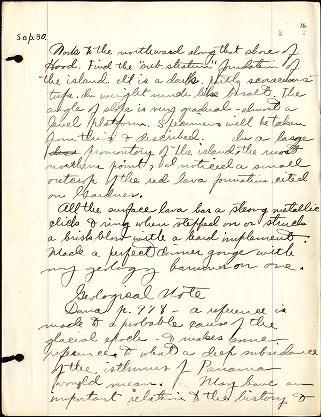 16.
Sep. 30.
Work to the northward along that shore of
Hood. Find the "sub stratum" foundation of
the island. It is a dark, partly scoriaceous
tufa. In weight much like basalt. The
angle of slope is very gradual - almost a
level platform. Specimens will be taken
from this & described. In a large
promontory of the island, the most
northern point, I noticed a small
outcrop of the red lava formation cited
on Gardner.
All the surface lava has a strong metallic
clink & ring when stepped on or struck
a brisk blow with a hard implement.
Made a perfect dinner gong with
my geology hammer on one.
Geological Note
Dana p. 978 - a reference is
made to a probable cause of the
glacial epoch. & makes some
reference to what a deep subsidence
of the isthmus of Panama
would mean. May have an
important relation to the history &